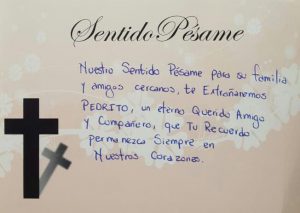 Sentido Pésame
Nuestro Sentido Pésame para su familia
y amigos cercanos, te Extrañaremos
PEDRITO, un eterno Querido Amigo
y Compañero, que Tu Recuerdo
permanezca Siempre en
Nuestros Corazones.